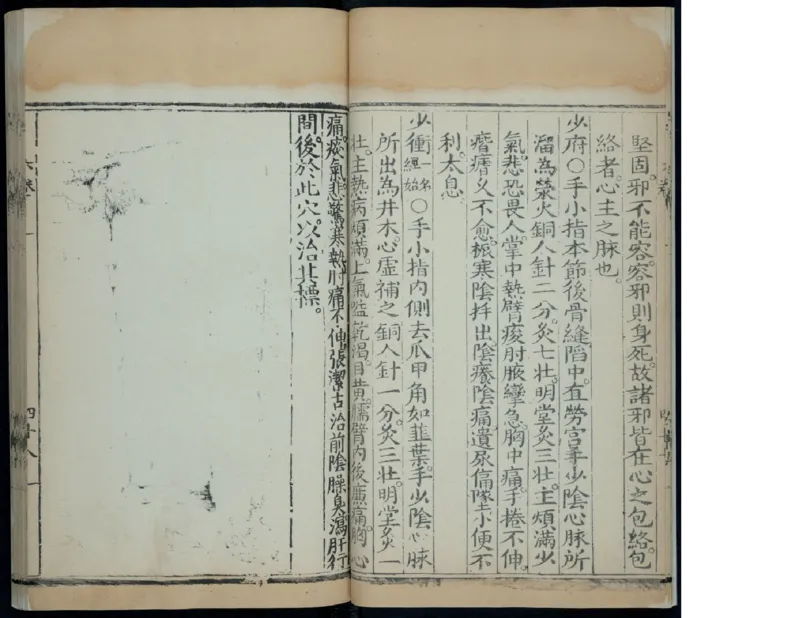 堅固。邪不能容。容邪則身死。故諸邪皆在心之包絡。包
絡者。心主之脉也。
少府〇手小指本節後骨縫陷中。直勞宮。手少陰心脉所
溜為滎火銅人針二分。灸七壯。明堂灸三壯。主煩滿少
氣。悲恐畏人。掌中熱。臂痠肘腋攣急。胸中痛。手捲不伸。
痎瘧久不愈。振寒。陰挺出。陰癢陰痛。遺尿偏墜。小便不
利。太息。
少衝一名經始〇手小指內側去爪甲角如韭葉。手少陰心脉
所出為井木。心虛補之銅人針一分。灸三壯。明堂灸一
壯。主熱病煩滿。上氣嗌乾渴。目黃。臑臂內後廉痛。胸心
痛。痰氣悲驚寒熱肘痛不伸。張潔古治前陰臊臭瀉肝行
間。後於此穴以治其標。
六卷
四十八